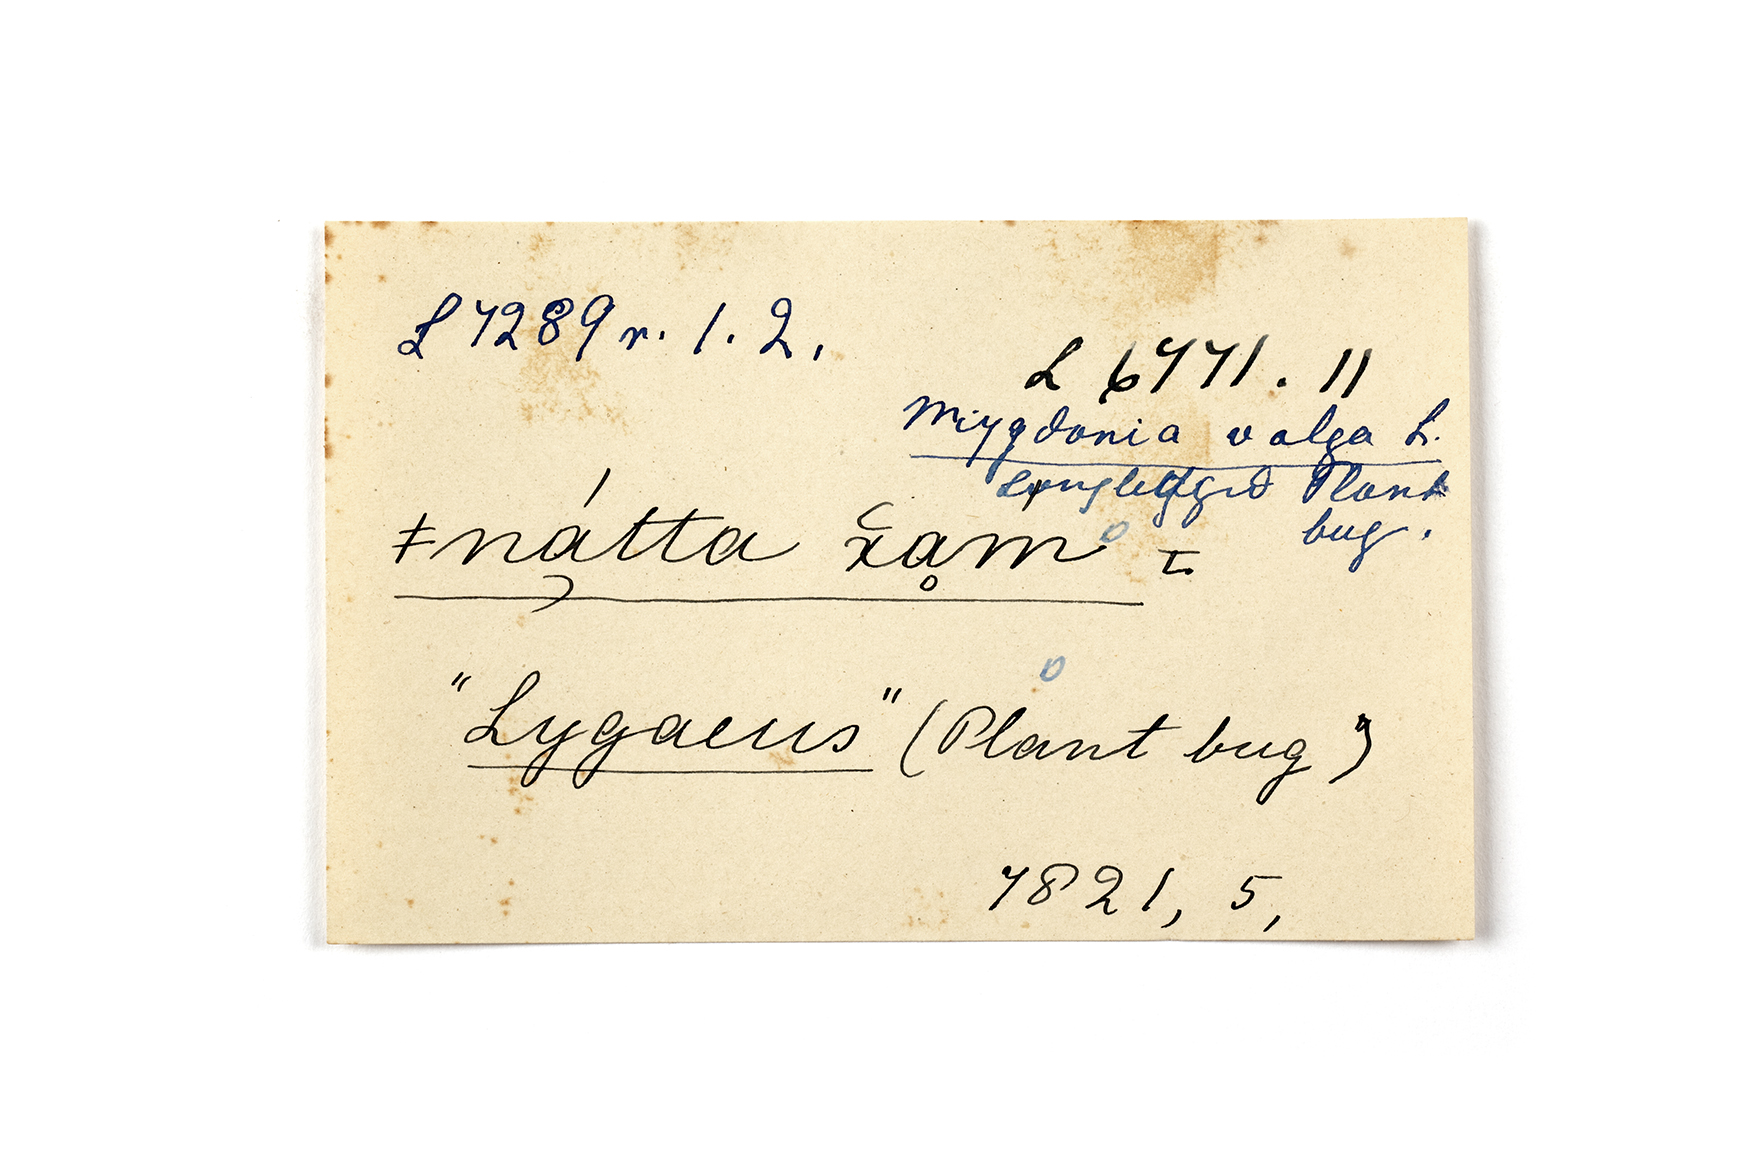 L 7289 r. 1. 2.
L 6771. 11
Miygdonia valga L.
Longlegged Plant
bug.
ǂnátta x̆ḁm I.
"Lygaeus" (Plant bug")
7821, 5,